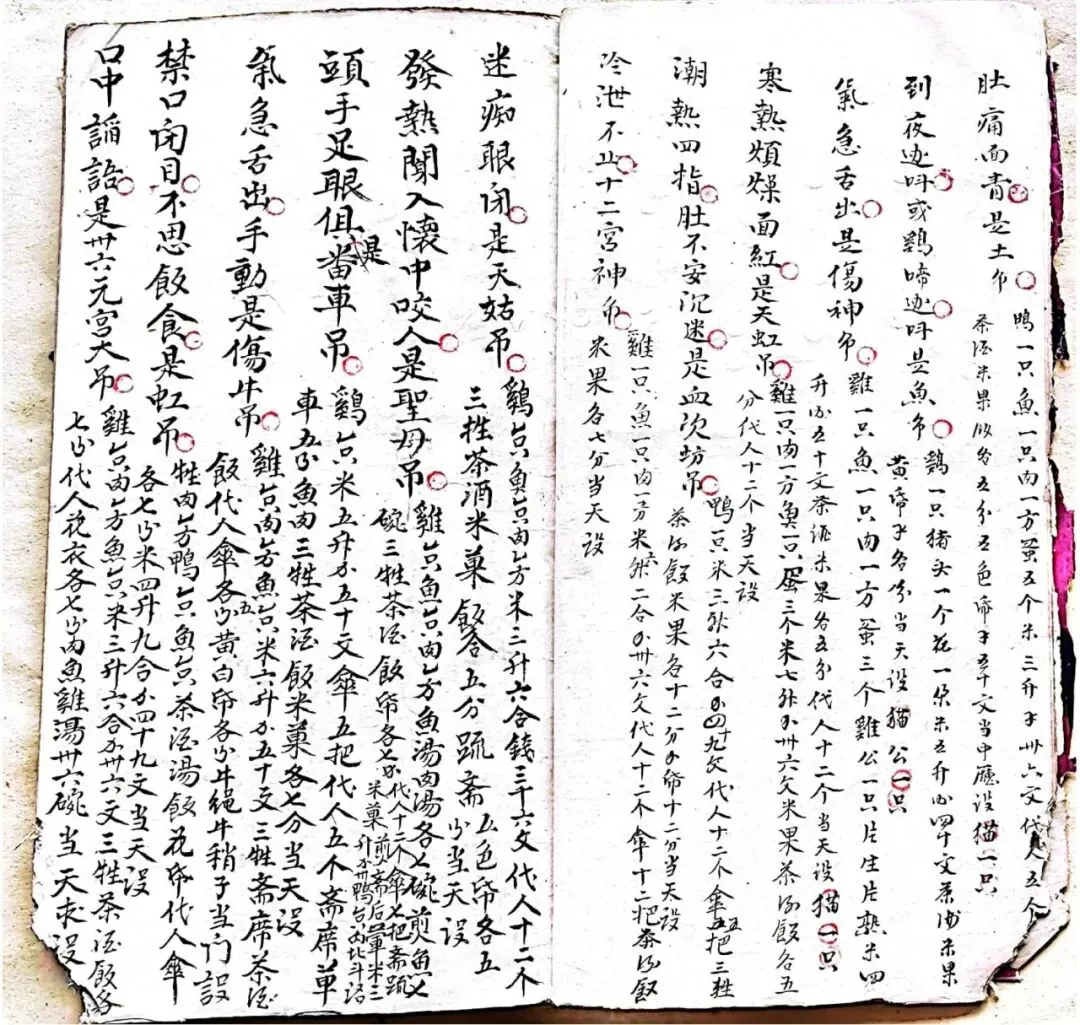 肚痛面青是土吊
鴨一只魚一只肉一方蛋五个米三升 卅六文代人五个
茶酒米果 各五分五色帋 文当中廳设猫一只
到夜 呌或鷄啼 呌是魚吊
鷄一只猪头一个花一朵米五升 四十文茶酒米果
黄帋 各 分当天设猫公一只
氣急舌出是傷神吊
雞一只魚一只肉一方蛋三个雞公一只片生片熟米四
升 五十文茶酒米果各五分代人十二个当天设猫一只
寒熱煩燥面紅是天虹吊
雞一只肉一方魚一只蛋三个米七升 卅六文米果茶酒飯各五
分代人十二个当天设
潮熱四指肚不安沉迷是血次坊吊
鴨一只米三升六合 四十九文代人十二个傘五把三牲
茶酒飯米果各十二分 帋十二分当天设
冷泄不止十二宮神吊
雞一只魚一只肉一方米 二合 卅六文代人十二个傘十二把茶酒飯
米果各七分当天设
迷痴眼闭是天姑吊
鷄 只魚 只肉 方米二升六合錢三千六文代人十二个
三牲茶酒米菓飯各五分疏斋五色帋各五
分当天设
發熱闖入懷中咬人是聖母吊
雞 只魚 只肉 方魚湯肉湯各七碗煎魚七
碗三牲茶酒飯帋各七分代人十二个傘七把斋疏
米菓煎 斋后 軍米三
升 卅鴨 只 北斗
頭手足眼俱是畨車吊
鷄 只米五升 五十文傘五把代人五个斋席草
車五分魚肉三牲茶酒飯米菓各七分当天设
氣急舌出手動是傷牛吊
雞 只肉 方魚 只米六升 五十文三牲斋席茶酒
飯代人傘各五分黄白帋各 分牛绳牛稍子当门設
禁口闭目不思飯食是虹吊
牲肉 方鴨 只魚 只茶酒湯飯花帋代人傘
各七分米四升九合 四十九文当天设
口中謟語是卅六元宮大吊
雞 只肉 方魚 只米三升六合 卅六文三牲茶酒飯各
七分代人花衣各七分肉魚雞湯卅六碗当天求设